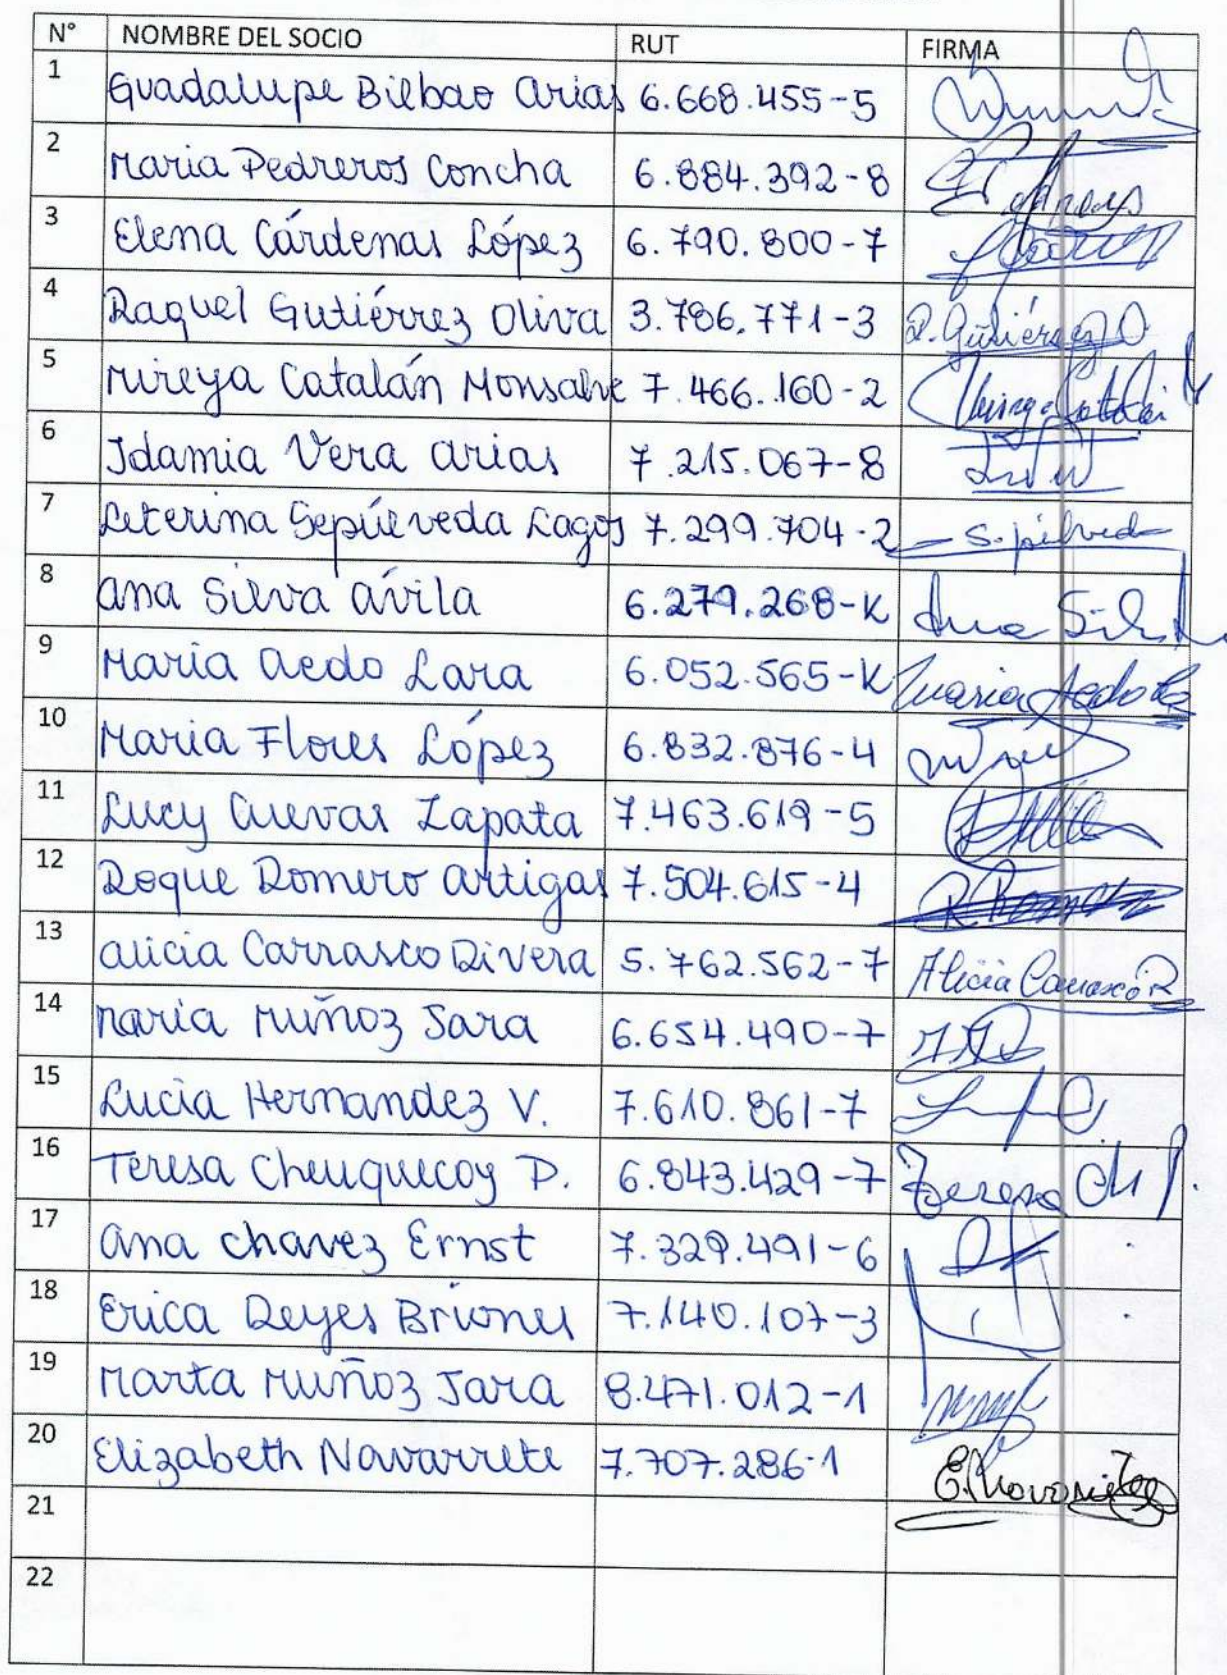 N° NOMBRE DEL SOCIO RUT FIRMA
1 Guadalupe Bilbao Arias 6.668.455-5
2 Maria Pedreros Concha 6.884.392-8
3 Elena Cárdenas López 6.790.800-7
4 Raquel Gutiérrez Oliva 3.786.771-3 R. Gutiérrez O
5 Mireya Catalán Monsalve 7.466.160-2
6 Idamia Vera Arias 7.215.067-8
7 Leterina Sepúlveda Lagos 7.299.704-2 Sepúlveda
8 Ana Silva Ávila 6.279.268-K Ana Silva
9 María Aedo Lara 6.052.565-K Maria Aedo
10 María Flores López 6.832.876-4
11 Lucy Cuevas Zapata 7.463.619-5
12 Roque Romero Artigas 7.504.615-4 R. Romero
13 Alicia Carrasco Rivera 5.762.562-7 Alicia Carrasco R
14 María Muñoz Jara 6.654.490-7
15 Lucía Hernandez V. 7.610.861-7
16 Teresa Cheuquecoy P. 6.843.429-7 Teresa Ch P.
17 Ana Chavez Ernst 7.329.491-6
18 Erica Reyes Briones 7.140.107-3
19 Marta Muñoz Jara 8.471.012-1
20 Elizabeth Navarrete 7.707.286-1 E. Navarrete
21
22